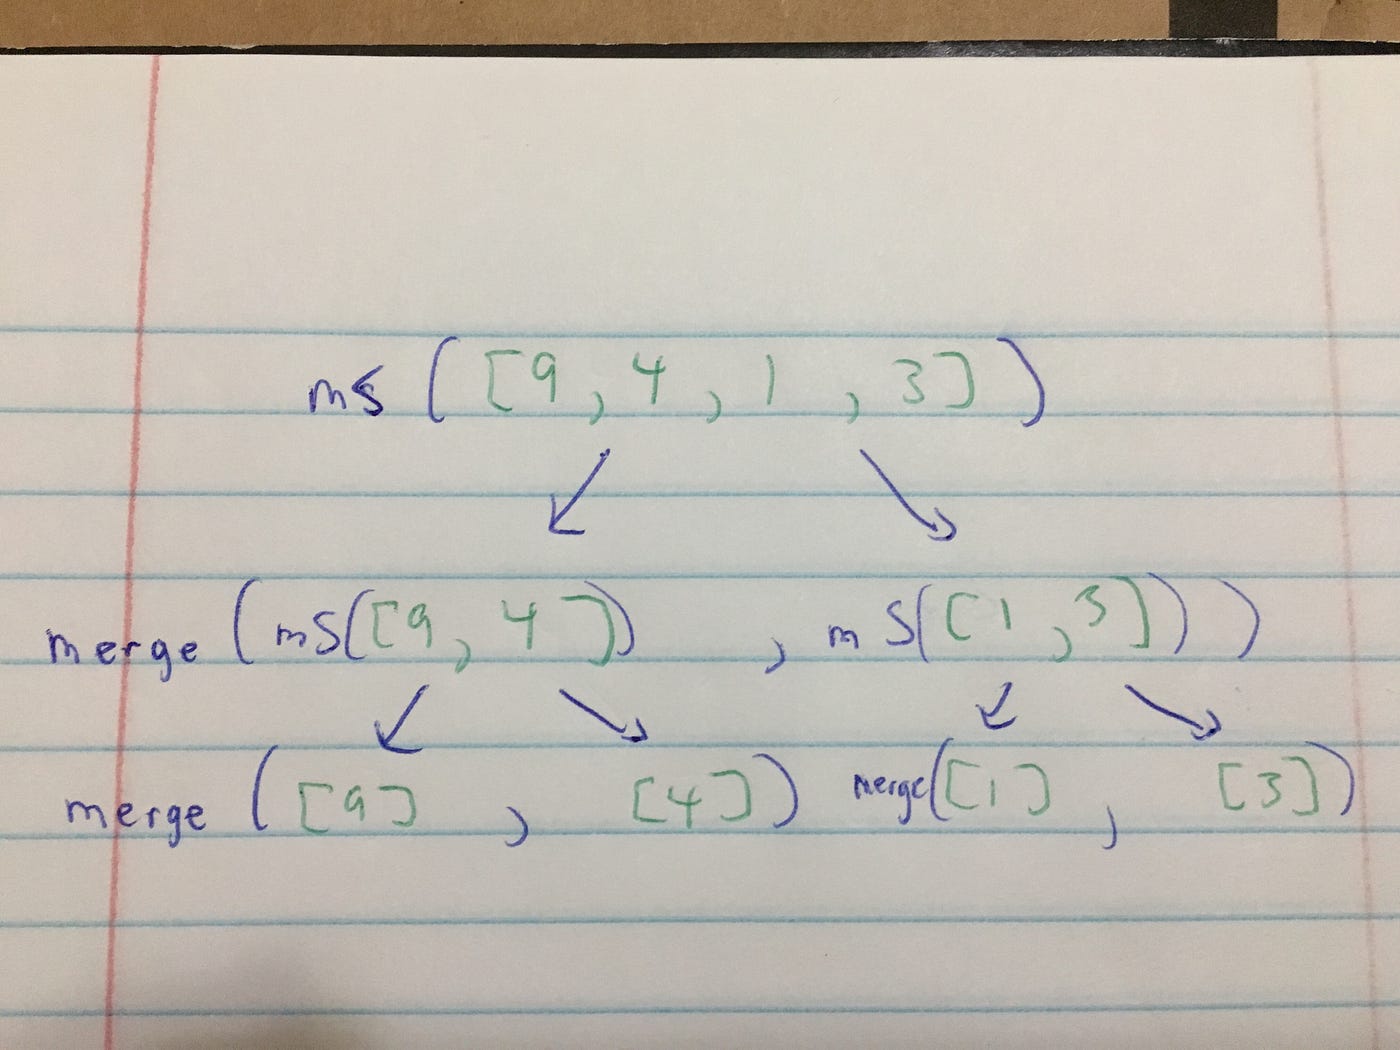 ms ([9, 4, 1, 3])
merge (mS([9, 4]), mS([1, 3]))
merge ([9], [4]) merge([1], [3])